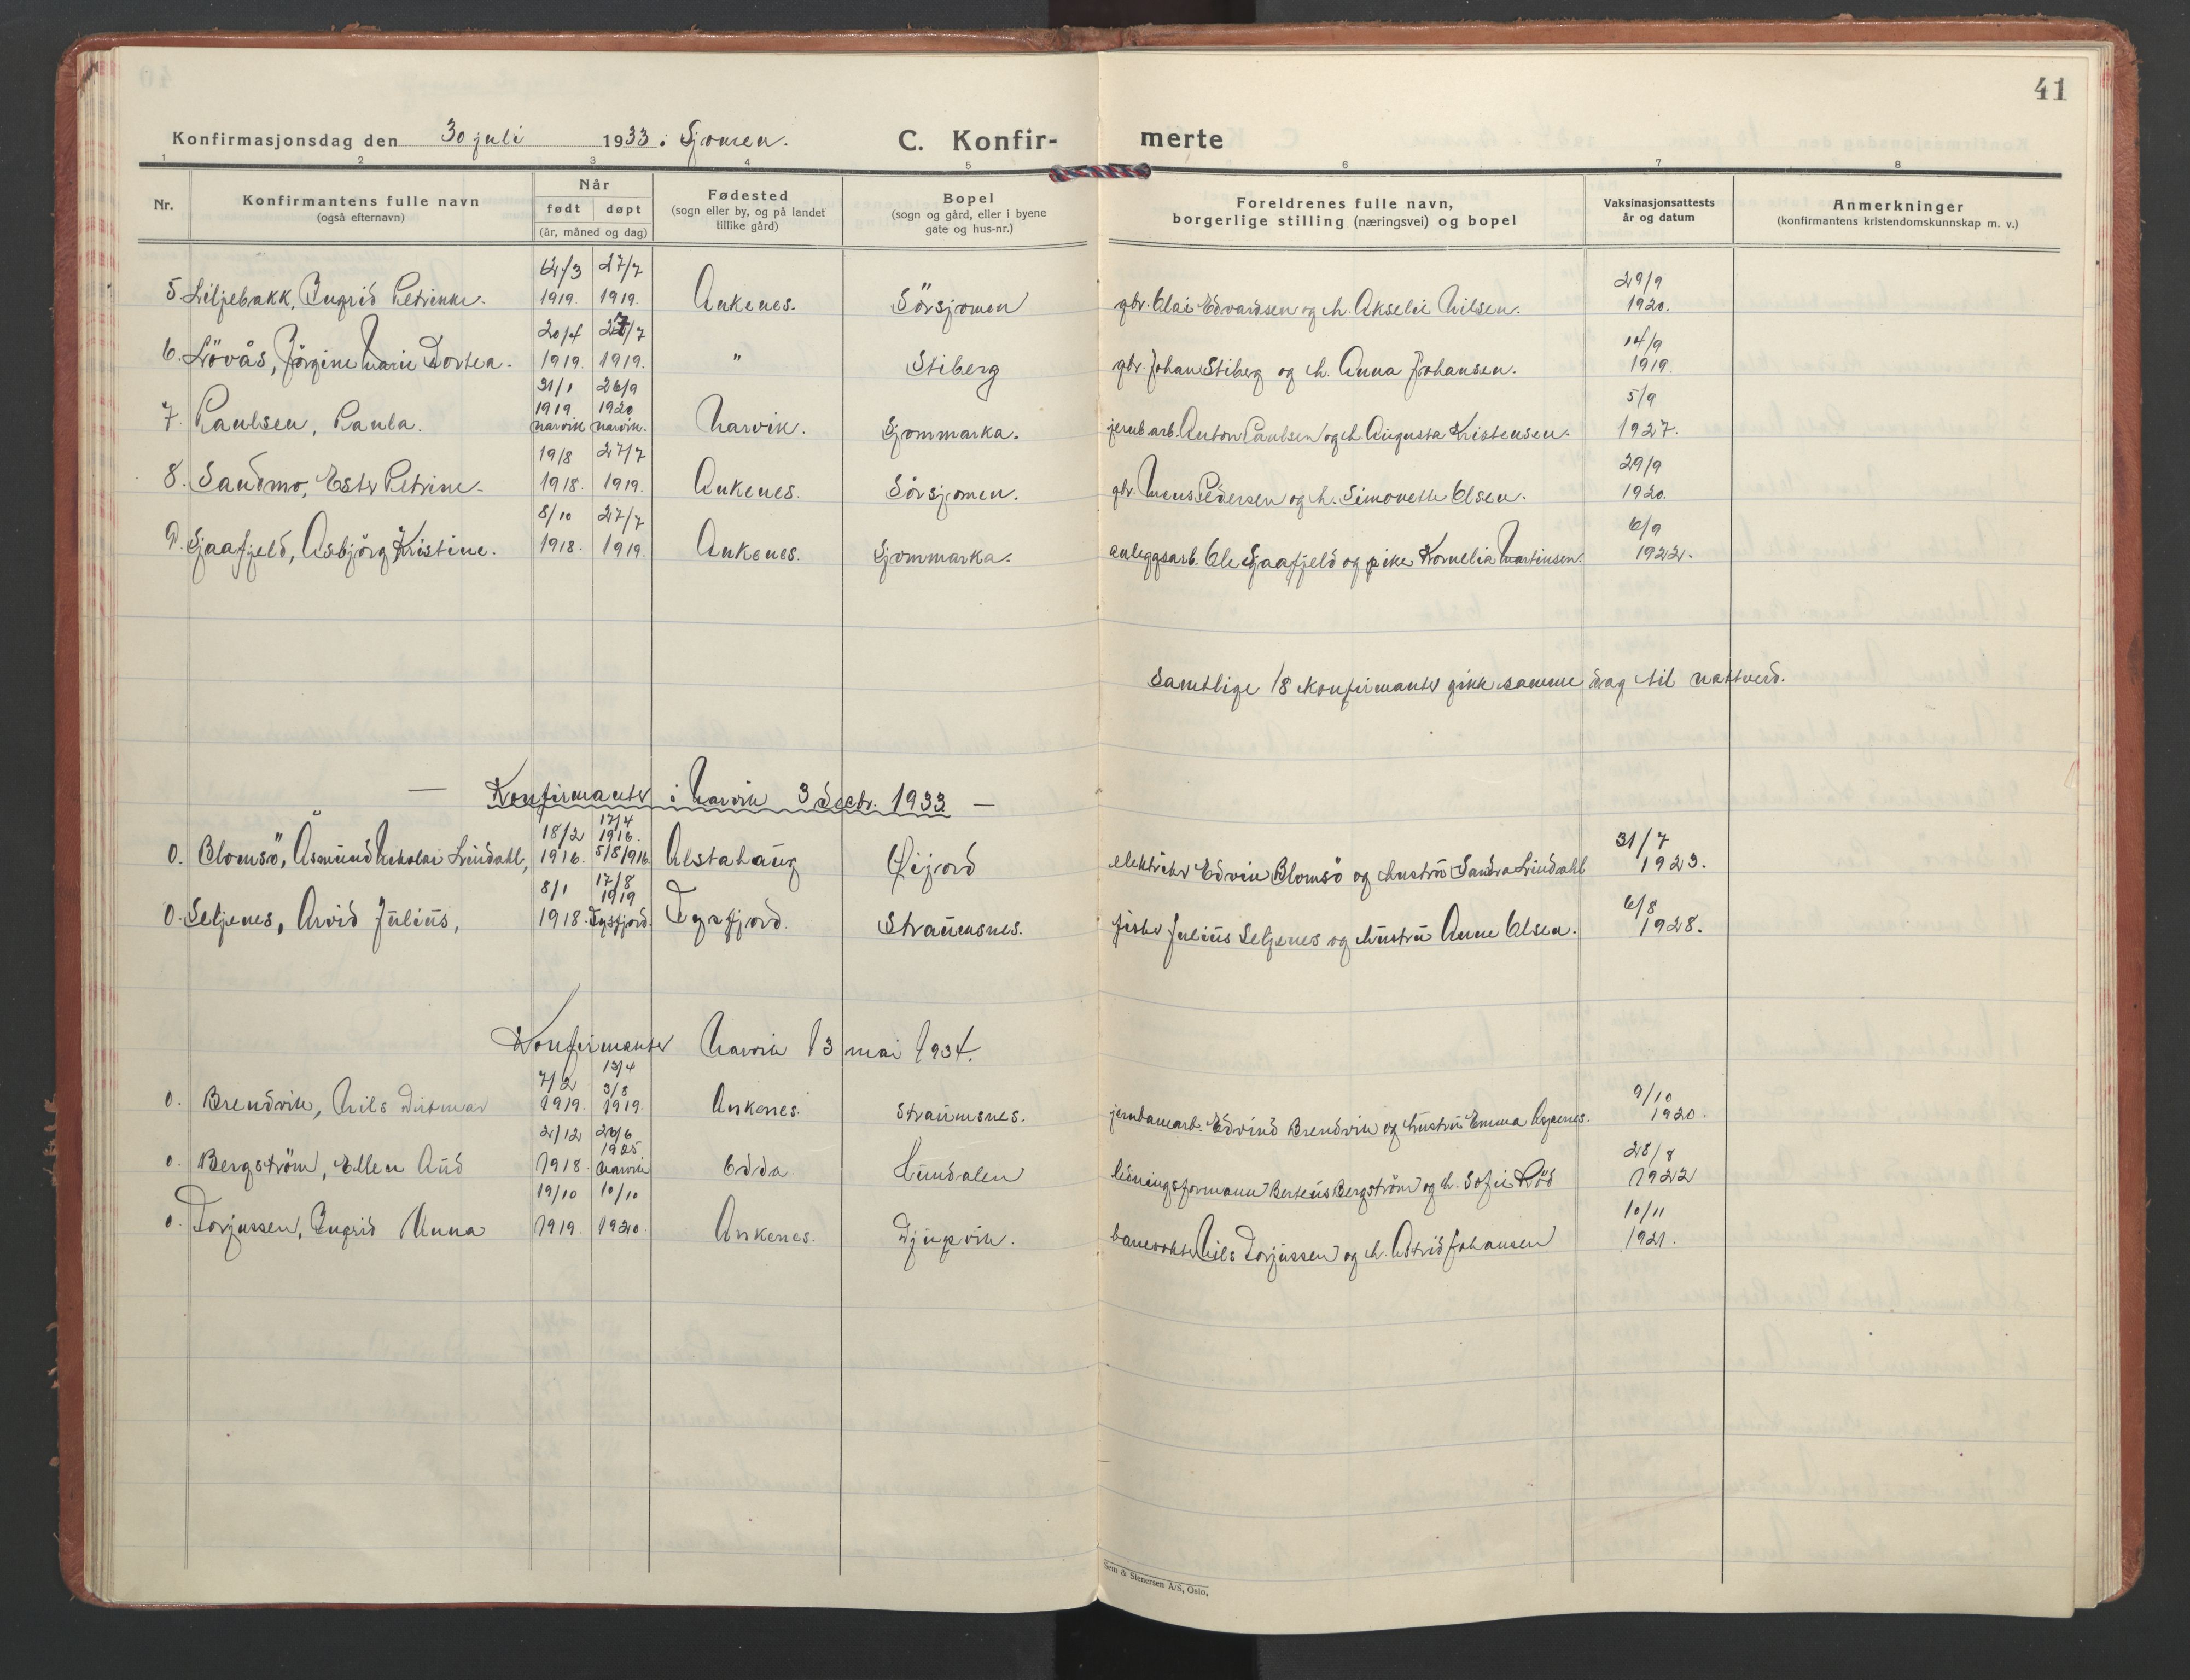 41
Konfirmasjonsdag den 30 juli 1933 i Sjomen. C. Konfir- merte
1 2 3 4 5 6 7 8
Nr. Konfirmantens fulle navn (også efternavn) Når født døpt (år, måned og dag) Fødested (sogn eller by, og på landet tillike gård) Bopel (sogn og gård, eller i byene gate og hus-nr.) Foreldrenes fulle navn, borgerlige stilling (næringsvei) og bopel Vaksinasjonsattests år og datum Anmerkninger (konfirmantens kristendomskunnskap m. v.)
5 Liljebakk, Ingrid Petrikke. 1919. 27/7 1919. Ankenes. Sörsjomen gbr. Olai Edvardsen og h. Akselie Nilsen. 29/9 1920.
6. Lövås, Jörgine Marie Dortea. 20/4 1919. 27/7 1919. " Stiberg gbr. Johan Stiberg og h. Anna Johansen. 14/9 1919.
7. Paulsen, Paula. 31/1 1919 Narvik 26/9 1920 Narvik. Narvik. Sjommarka. jernb.arb. Anton Paulsen og h. Augusta Kristensen. 5/9 1927.
8. Sandmo, Ester Petrine. 19/8 1918. 27/7 1919. Ankenes. Sörsjomen. gbr. Mons Pedersen og h. Simonette Olsen. 29/9 1920.
9. Sjaafjeld, Asbjörg Kristine. 8/10 1918. 27/7 1919. Ankenes. Sjommarka. anleggsarb. Ole Sjaafjeld og pike Kornelia Martinsen. 6/9 1922.
Samtlige 18 konfirmanter gikk samme dag til nattverd.
— Konfirmanter i Narvik 3 decbr. 1933 —
0. Blomsö, Åsmund Nikolai Lindahl, 18/2 1916. 17/4 1916. 5/8 1916 Alstahaug Öijord elektriker Edvin Blomsö og hustru Sandra Lindahl 31/7 1923.
0. Seljenes, Arvid Julius, 8/1 1918. 17/8 1919 Tysfjord. Tysfjord. Straumsnes. fisker Julius Seljenes og hustru Anne Olsen. 6/8 1928.
Konfirmanter Narvik 13 mai 1934.
0. Brendvik, Nils Ditmar 7/2 1919. 13/4 3/8 1919. Ankenes. Straumsnes. jernbanearb. Edvind Brendvik og hustru Emma Aspenes. 9/10 1920.
0. Bergström, Ellen Aud 2/12 1918. 26/6 1925 Narvik Odda Hundalen ledningsformann Berteus Bergström og h. Sofie Röd 28/8 1922
0. Torjussen, Ingrid Anna 19/10 1919. 10/10 1920. Ankenes. Djupvik. banevokter Nils Torjussen og h. Astrid Johansen 10/11 1921.
& Stenersen A/S, Oslo.